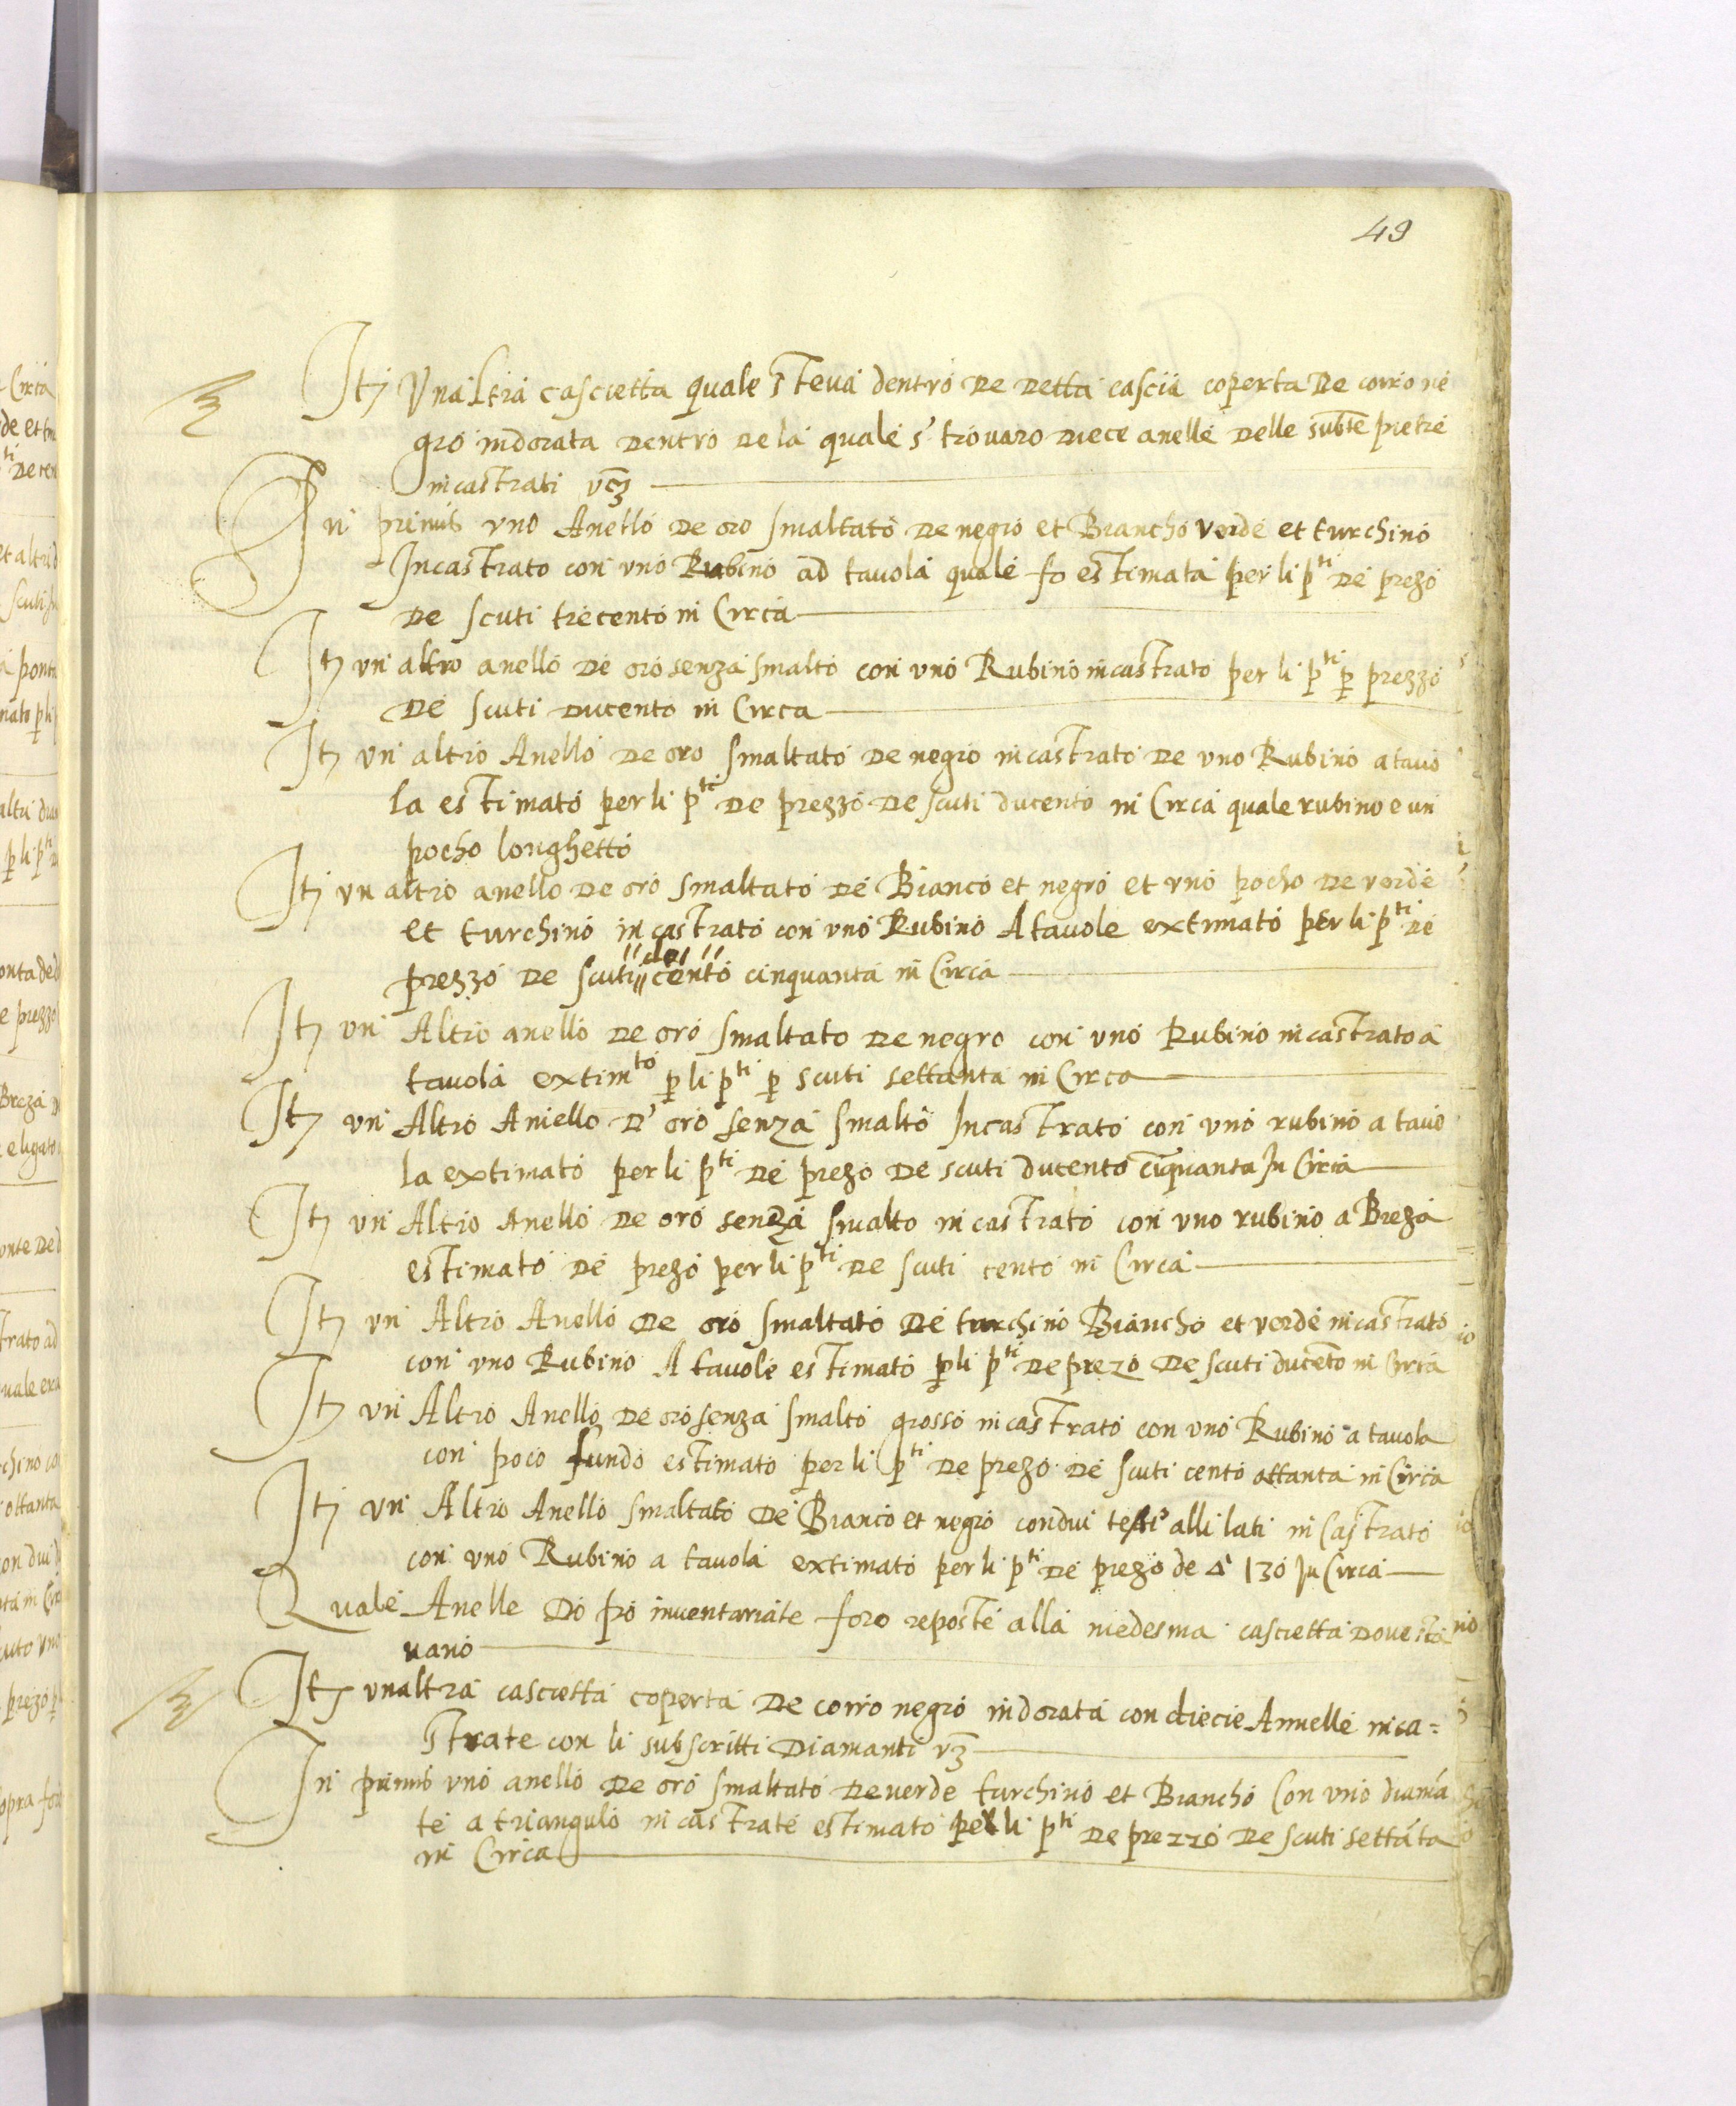 49
Itj Vnaltra cascietta quale steua dentro de detta cascia coperta de corio ne
gro indorata dentro dela quale s' trouaro diece anelle delle subte pietre
incastrati vcz
In primis vno Anello de oro smaltato de negro et Biancho verde et turchino
Incastrato con vno Rubino ad tauola quale fo estimata per li pti de prezo
de scuti trecento in Circa
Itz vn altro anello de oro senza smalto con vno Rubino incastrato per li pti p prezzo
de scuti ducento in Circa
Itz vn altro Anello de oro smaltato de negro incastrato de vno Rubino a tauo
la estimato per li pti de prezzo de scuti ducento in Circa quale rubino e un
pocho longhetto
Itj vn altro anello de oro smaltato de Bianco et negro et vno pocho de verde
et turchino incastrato con vno Rubino A tauole extimato per li pti de
prezzo de scuti cento cinquanta in Circa
Itz vn Altro anello de oro smaltato de negro con vno Rubino incastrato a
tauola extimto p li pti p scuti settanta in Circa
Itz vn Altro Aniello d' oro senza smalto Incastrato con vno rubino a tauo
la extimato per li pti de prezo de scuti ducento cinquanta In Circa
Itz vn Altro Anello de oro senza smalto incastrato con vno rubino a Breza
estimato de prezo per li pti de scuti cento in Circa
Itz vn Altro Anello de oro smaltato de turchino Biancho et verde incastrato
con vno Rubino A tauole estimato p li pti de prezo de scuti ducento in Circa
Itz vn Altro Anello de oro senza smalto grosso incastrato con vno Rubino a tauola
con poco fundo estimato per li pti de prezo de scuti cento ottanta in Circa
Itj vn Altro Anello smaltato de Bianco et negro con dui testi alli lati in Castrato
con vno Rubino a tauola extimato per li pti de prezo de Δi 130 In Circa
Quale Anelle do po inuentariate foro reposte alla medesma cascietta doue sta
uano
Itz vnaltra cascietta coperta de corio negro indorata con diecie Annelle inca=
strate con li subscritti Diamanti vz
In primis vno anello de oro smaltato de verde turchino et Biancho Con vno diama
te a triangulo in castrate estimato per li pti de prezzo de scuti settata
in Circa